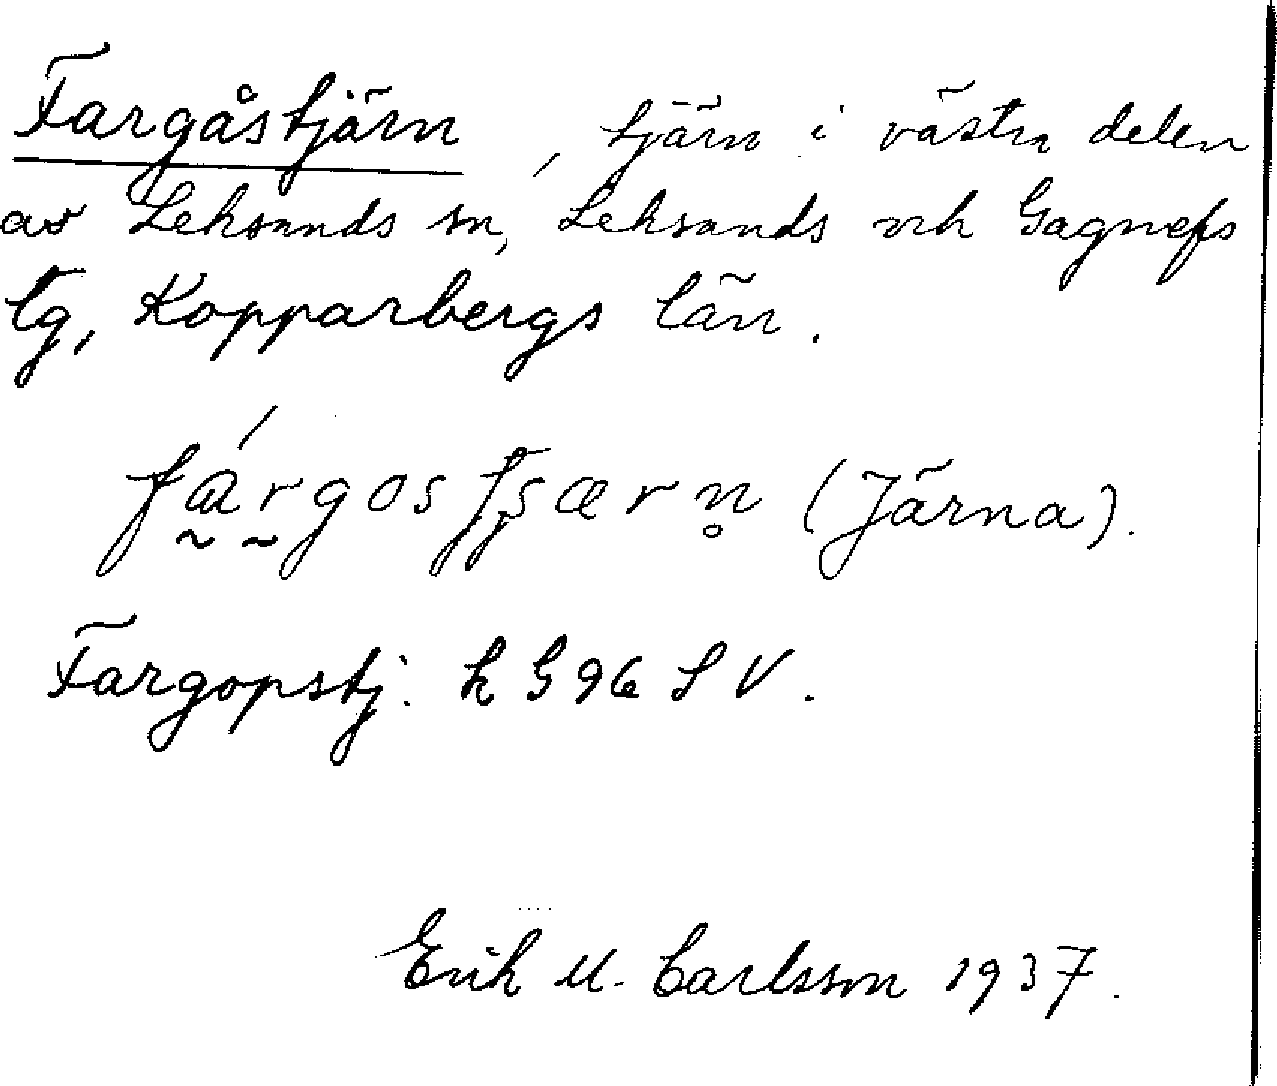 Fargåstjärn, tjärn i västra delen
av Leksands sn, Leksands och Gagnefs
tg, Kopparbergs län.
(Järna).
Fargopstj. k G 96 S V.
Erik M. Carlsson 1937.